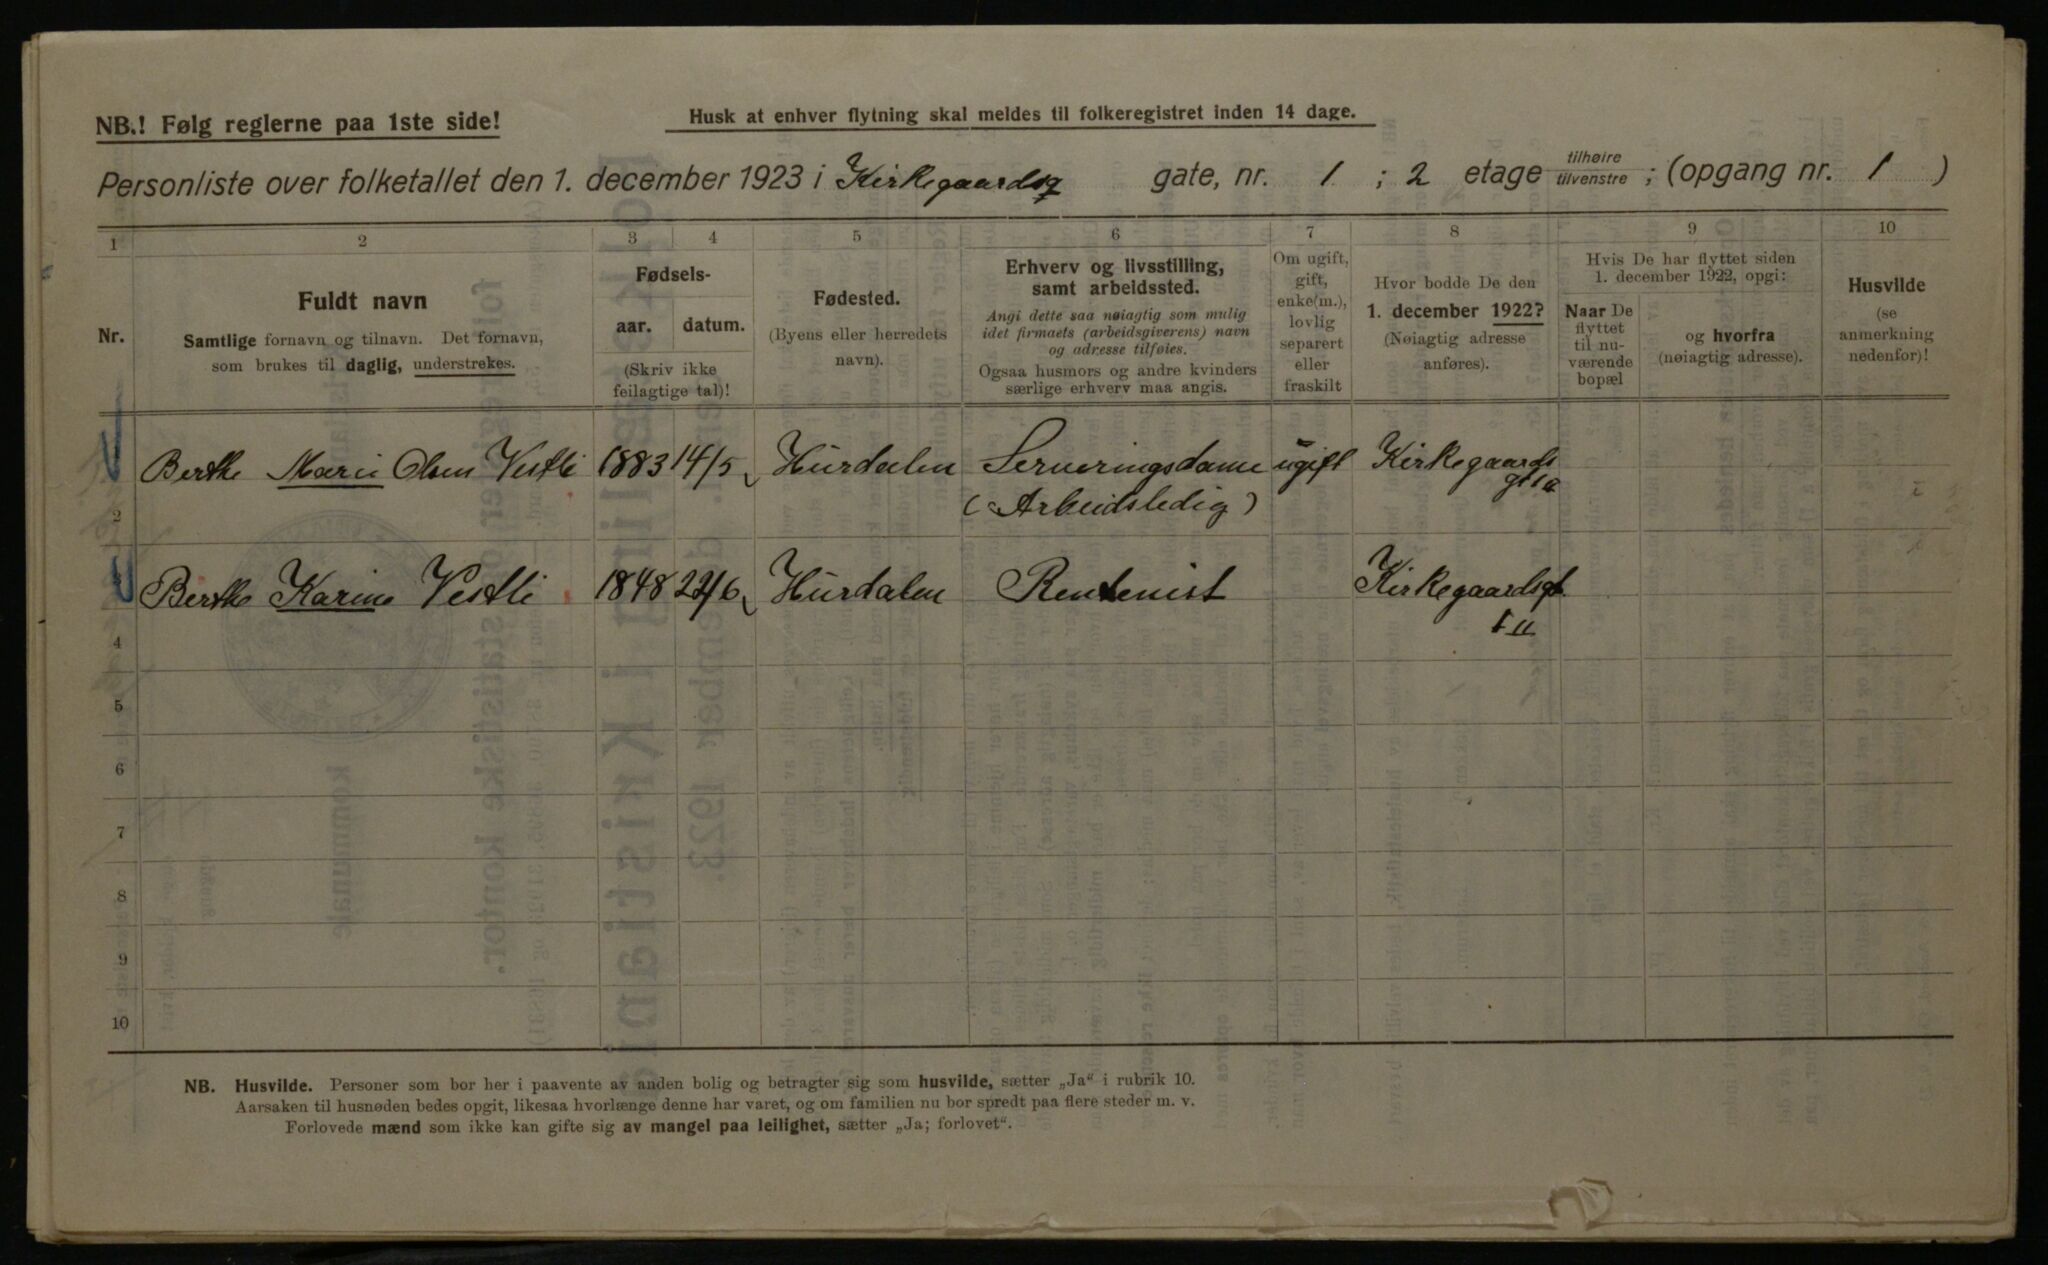 NB.! Følg reglerne paa 1ste side!
Husk at enhver flytning skal meldes til folkeregistret inden 14 dage.
Personliste over folketallet den 1. december 1923 i Kirkegaardsg gate, nr. 1 ; 2 etage tilhøire tilvenstre ; (opgang nr. 1 )
1 2 3 4 5 6 7 8 9 10
Nr.
Fuldt navn
Samtlige fornavn og tilnavn. Det fornavn,
som brukes til daglig, understrekes.
Fødsels-
aar. datum.
(Skriv ikke
feilagtige tal)!
Fødested.
(Byens eller herredets
navn).
Erhverv og livsstilling,
samt arbeidssted.
Angi dette saa nøiagtig som mulig
idet firmaets (arbeidsgiverens) navn
og adresse tilføies.
Ogsaa husmors og andre kvinders
særlige erhverv maa angis.
Om ugift,
gift,
enke(m.),
lovlig
separert
eller
fraskilt
Hvor bodde De den
1. december 1922?
(Nøiagtig adresse
anføres).
Hvis De har flyttet siden
1. december 1922, opgi:
Naar De
flyttet
til nu-
værende
bopæl
og hvorfra
(nøiagtig adresse).
Husvilde
(se
anmerkning
nedenfor)!
Berthe Marie Olsen Vestli 1883 14/5 Hurdalen Serveringsdame ugift Kirkegaards
2 (Arbeidsledig)
Berthe Karine Vestli 1848 22/6 Hurdalen Rentenist Kirkegaardsgt.
4 1 II
5
6
7
8
9
10
NB. Husvilde. Personer som bor her i paavente av anden bolig og betragter sig som husvilde, sætter „Ja“ i rubrik 10.
Aarsaken til husnøden bedes opgit, likesaa hvorlænge denne har varet, og om familien nu bor spredt paa flere steder m. v.
Forlovede mænd som ikke kan gifte sig av mangel paa leilighet, sætter „Ja; forlovet“.